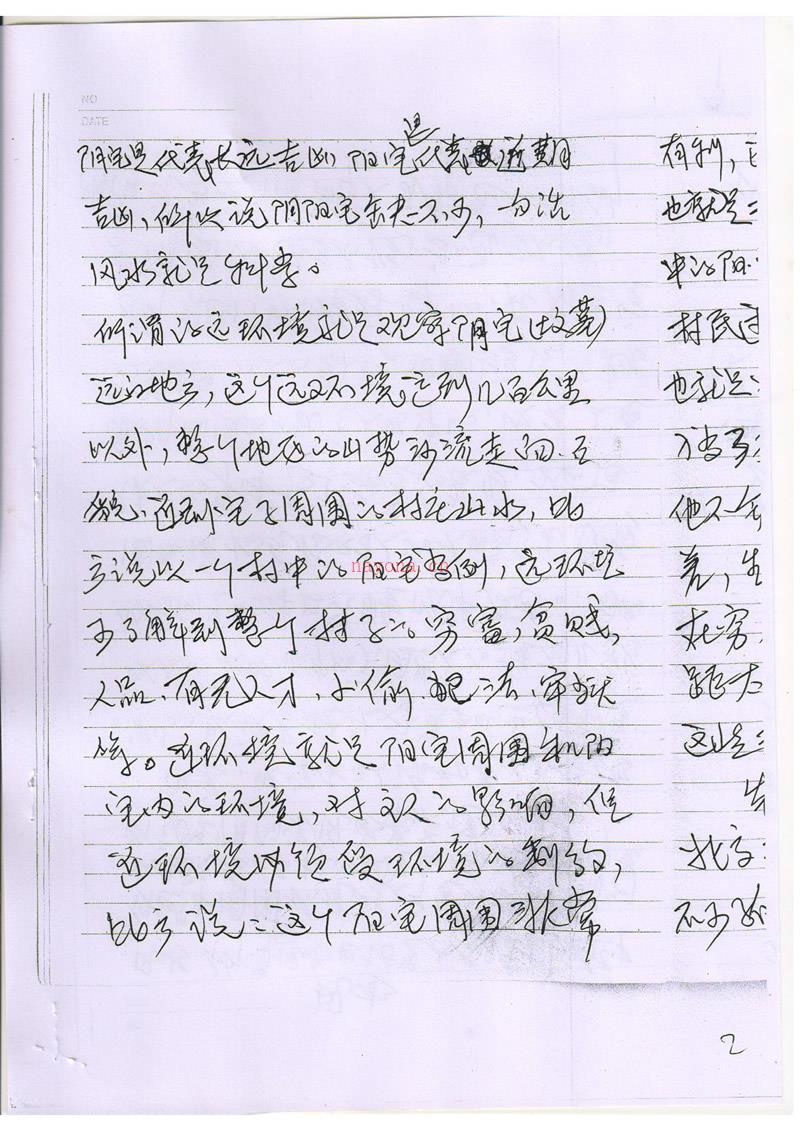 NO
DATE
阴宅是代表长远吉凶 阳宅是代表近期
吉凶、所以说阴阳宅缺一不少,
风水就是科学。
所谓的远环境就是观察阴宅(坟墓)
远的地方,这个远又环境,达到几百公里
以外,整个地区的山势河流走向.
近到宅子周围的村庄山水,比
方说以一个村中的阳宅为例,远环境
多了解到整个村子的穷富,贫贱,
人品、有无人才、小偷、犯法、牢狱
等。近环境就是阳宅周围和阴
宅内的环境,对主人的影响,但
近环境必须受环境的制约,
比方说:这个阳宅周围非常
有利,
也就是
中的阳
村民
也就是
他不
差,生
在穷
距大
这些是
我方
不少
2
nayona.cn